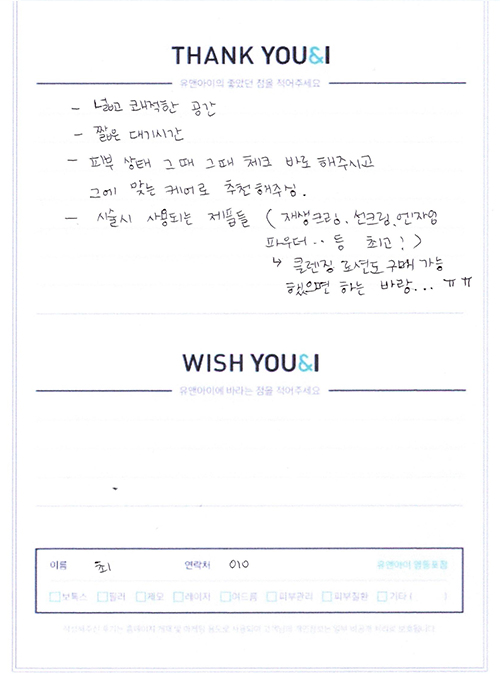 THANK YOU&I
유앤아이의 좋았던 점을 적어주세요
- 넓고 쾌적한 공간
- 짧은 대기시간
- 피부 상태 그때 그때 체크 바로 해주시고
그에 맞는 케어로 추천해주심.
- 시술시 사용되는 제품들 (재생크림, 선크림, 언자일
파우더.. 등 최고!)
↳ 클렌징 로션도 구매 가능
했으면 하는 바람... ㅠㅠ
WISH YOU&I
유앤아이에 바라는 점을 적어주세요
이름 최 연락처 010 유앤아이 영등포점
보톡스 필러 제모 레이저 여드름 피부관리 피부질환 기타 ( )